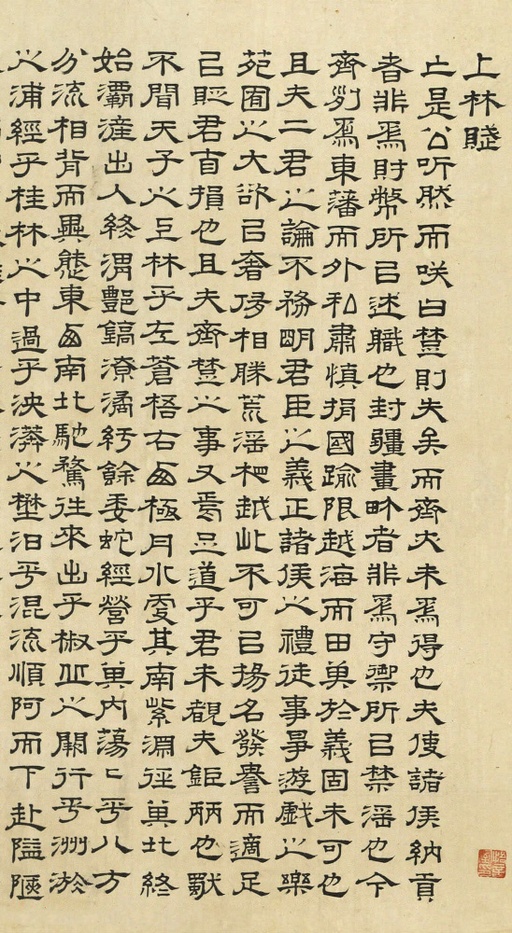 上林賦
亡是公听然而咲曰楚則失矣而齊亦未爲得也夫使諸侯納貢
者非爲財幣所以述職也封疆畫畍者非爲守禦所以禁淫也今
齊列爲東藩而外私肅慎捐國踰限越海而田其於義固未可也
且夫二君之論不務明君臣之義正諸侯之禮徒事爭遊戲之樂
苑囿之大欲以奢侈相勝荒淫相越此不可以揚名發譽而適足
以貶君自損也且夫齊楚之事又焉足道乎君未覩夫鉅麗也獨
不聞天子之上林乎左蒼梧右西極丹水更其南紫淵徑其北終
始灞滻出入涇渭酆鎬潦潏紆餘委蛇經營乎其內蕩〻乎八方
分流相背而異態東西南北馳騖往來出乎椒丘之闕行乎洲淤
之浦經乎桂林之中過乎泱漭之壄汨乎混流順阿而下赴隘陿